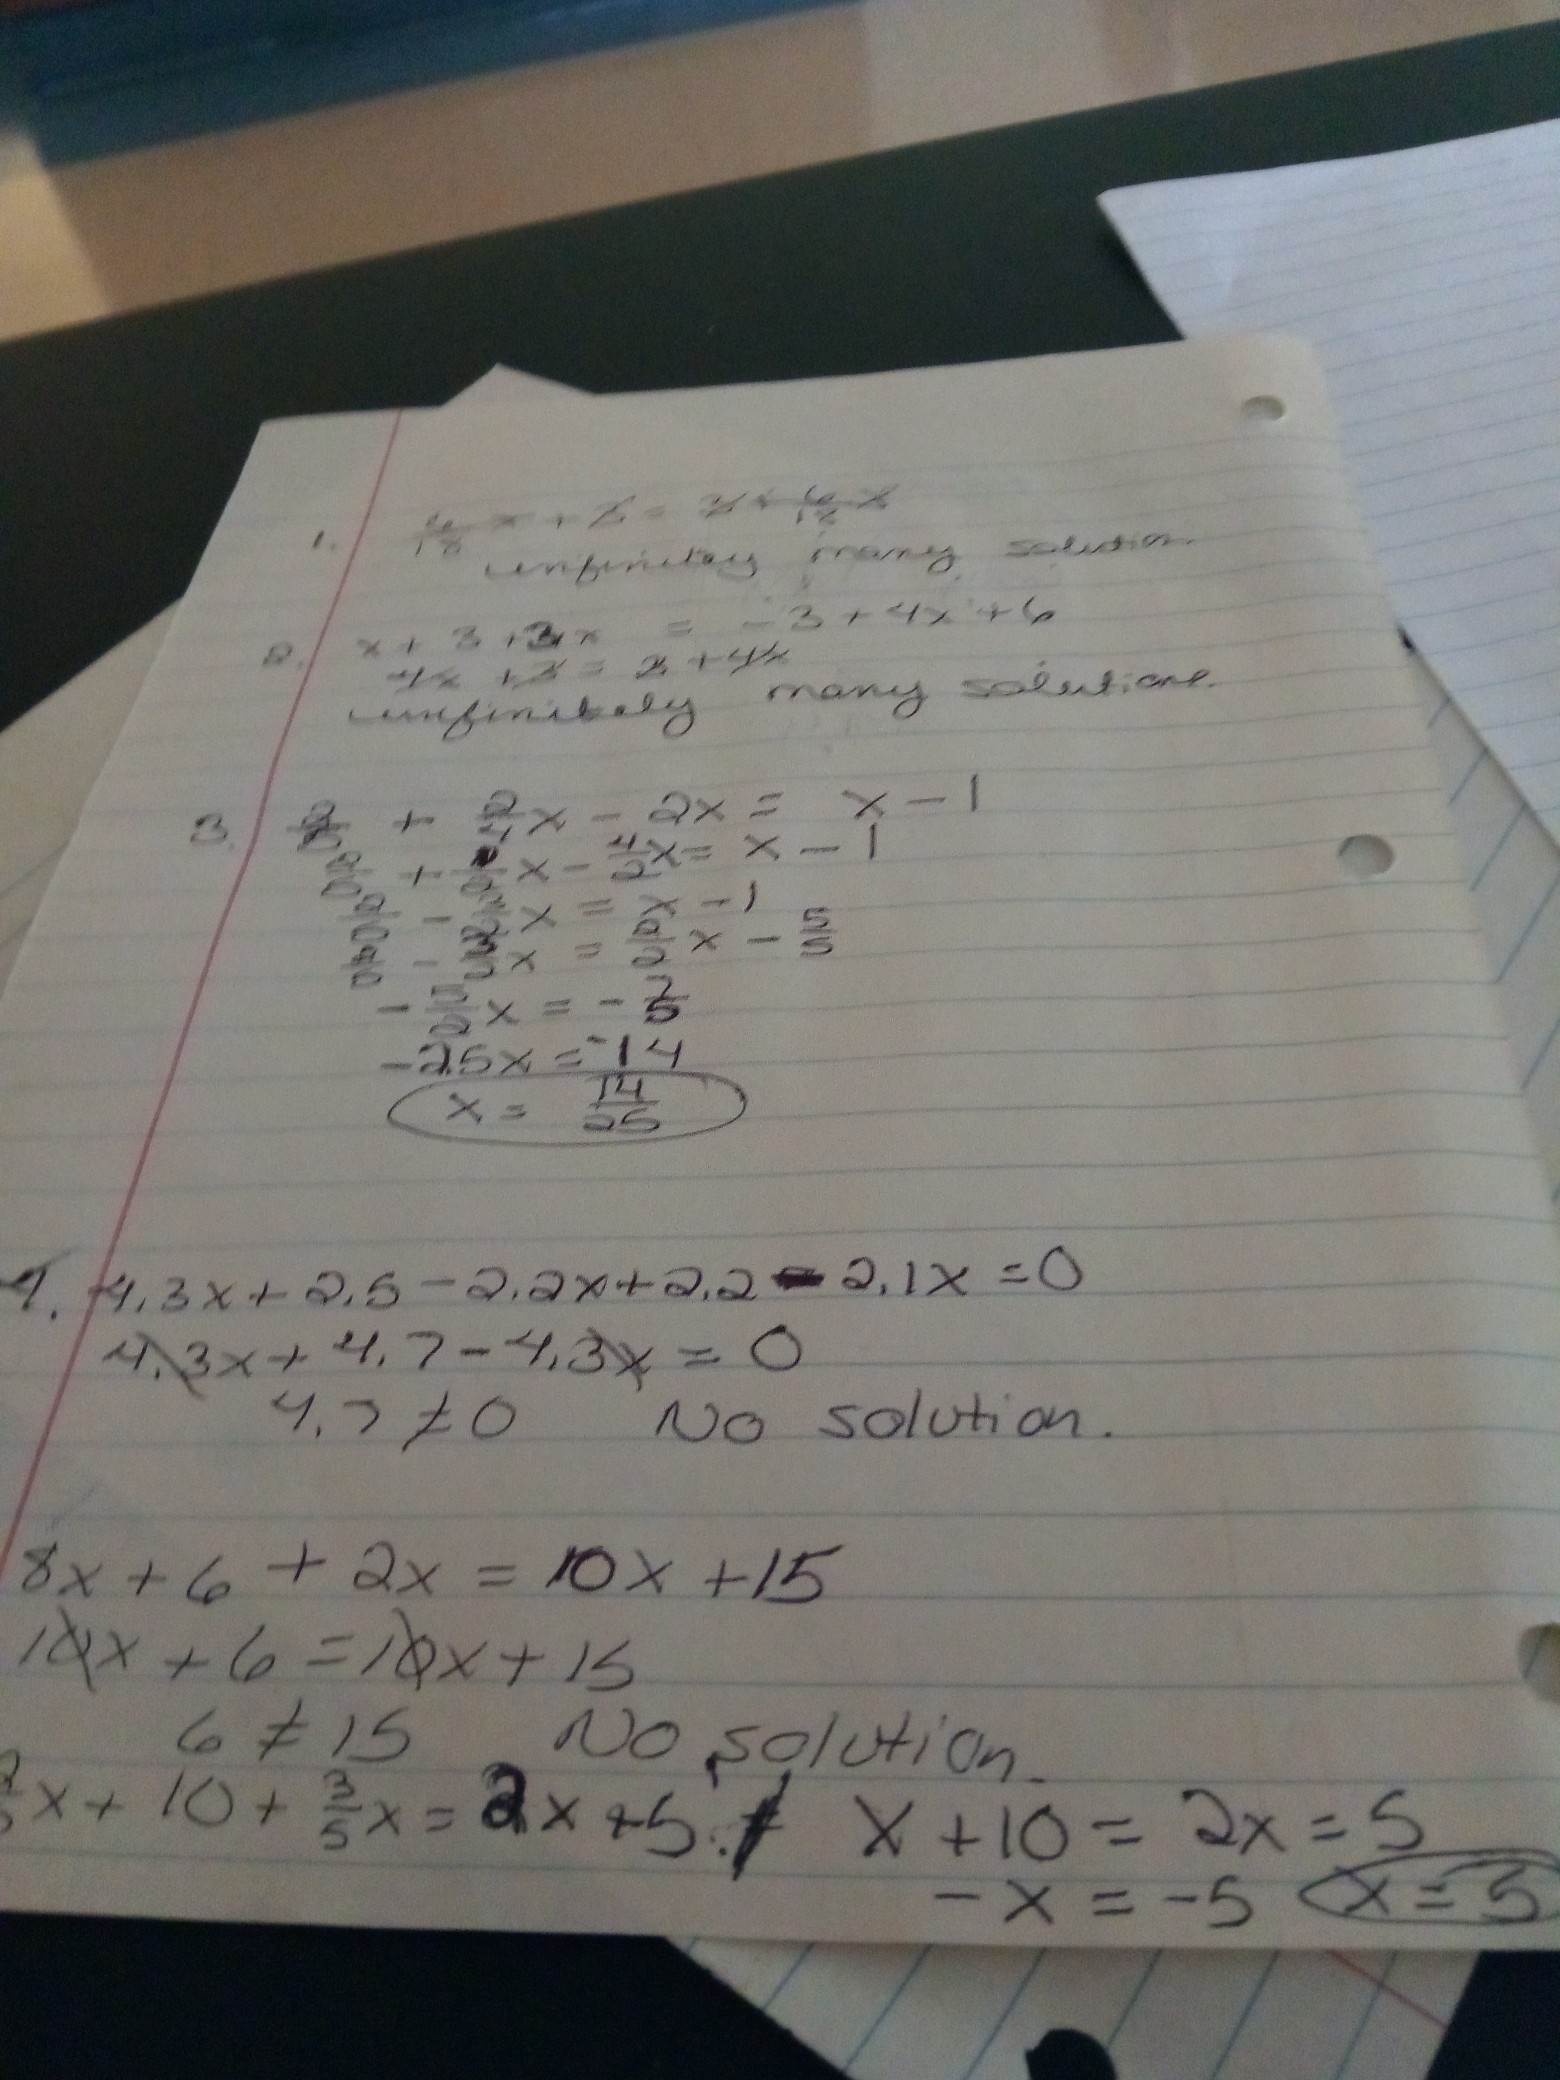 1. 6/18 x + 2 = 2 + 6/18 x
infinitely many solution.
2. x + 3 + 3x = -3 + 4x + 6
4x + 3 = 3 + 4x
infinitely many solutions.
3. + 2/4 x - 2x = x - 1
x - 4/2 x = x - 1
x = x - 1
x = x - 5/5
x = - 7/5
-25x = -14
x = 14/25
4. 4.3x + 2.5 - 2.2x + 2.2 - 2.1x = 0
4.3x + 4.7 - 4.3x = 0
4.7 ≠ 0 No solution.
8x + 6 + 2x = 10x + 15
10x + 6 = 10x + 15
6 ≠ 15 No solution.
x + 10 + 3/5 x = 2x + 5. x + 10 = 2x = 5
-x = -5 x = 5